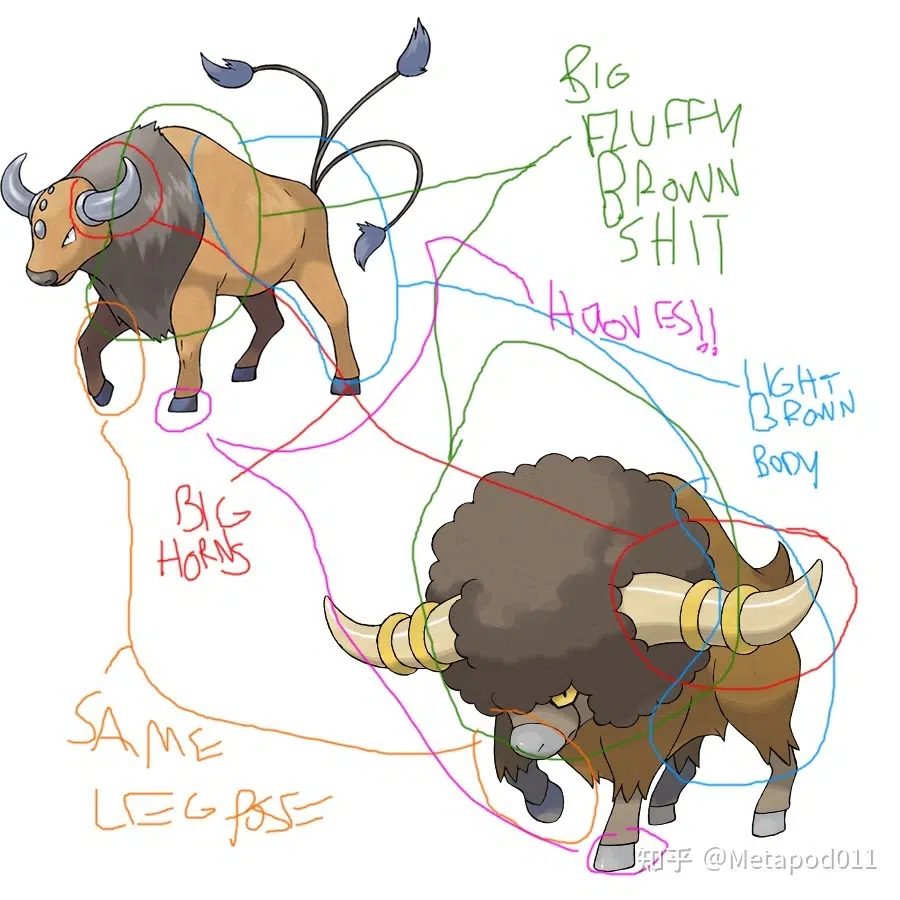 BIG
FLUFFY
BROWN
SHIT
HOOVES!!
LIGHT
BROWN
BODY
BIG
HORNS
SAME
LEG POSE
知乎 @Metapod011